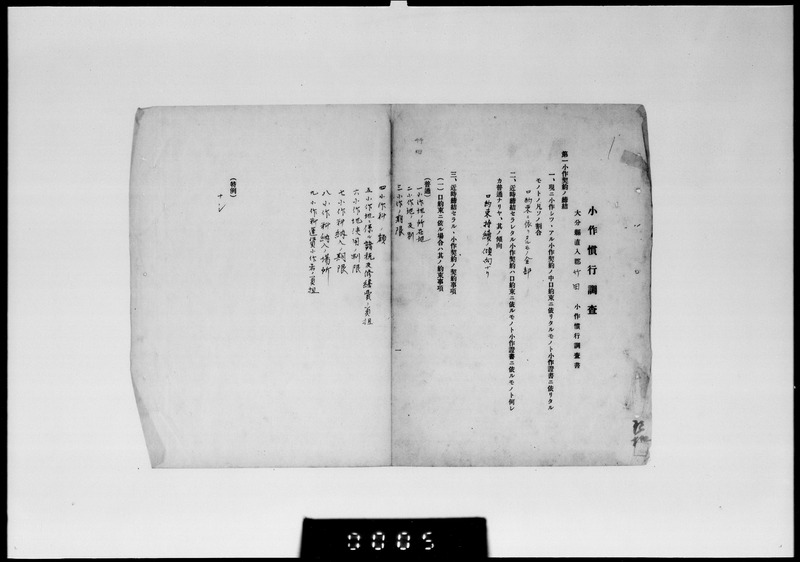 小作慣行調査
大分縣直入郡竹田 小作慣行調査書
第一小作契約ノ締結
一、現ニ小作シツヽアル小作契約ノ中口約束ニ依リタルモノト小作證書ニ依リタル
モノトノ凡ソノ割合
口約束ニ依リタルモノ全部
二、近時締結セラレタル小作契約ハ口約束ニ依ルモノト小作證書ニ依ルモノト何レ
カ普通ナリヤ、其ノ傾向
口約束持續ノ傾向ナリ
三、近時締結セラルヽ小作契約ノ契約事項
(一)口約束ニ依ル場合ハ其ノ約束事項
(普通)
一小作地ノ所在地
二小作地ノ反別
三小作ノ期限
一
四小作料ノ額
五小作地ニ係ル諸税及修繕費ノ負担
六小作地使用ノ制限
七小作料納入ノ期限
八小作料納入ノ場所
九小作料運賃小作者ノ負担
(特例)
ナシ
0005